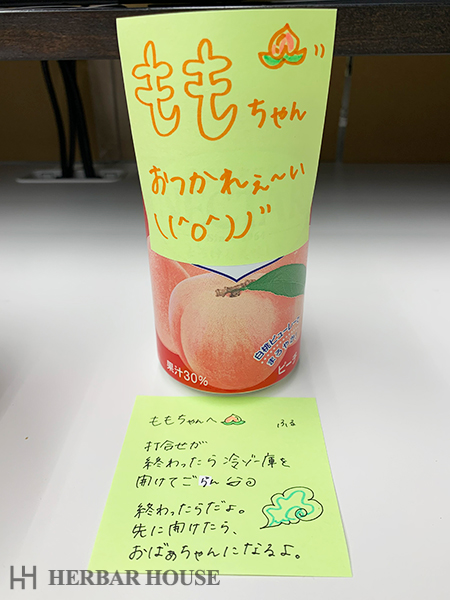 ももちゃん
おつかれぇ〜い
\(^o^)ノ"
白桃ピューレで
まろやか
果汁30%
ピーチ
ももちゃんへ
ふる
打合せが
終わったら冷ゾー庫を
開けてごらん
終わったらだよ。
先に開けたら、
おばぁちゃんになるよ。
HH HERBAR HOUSE